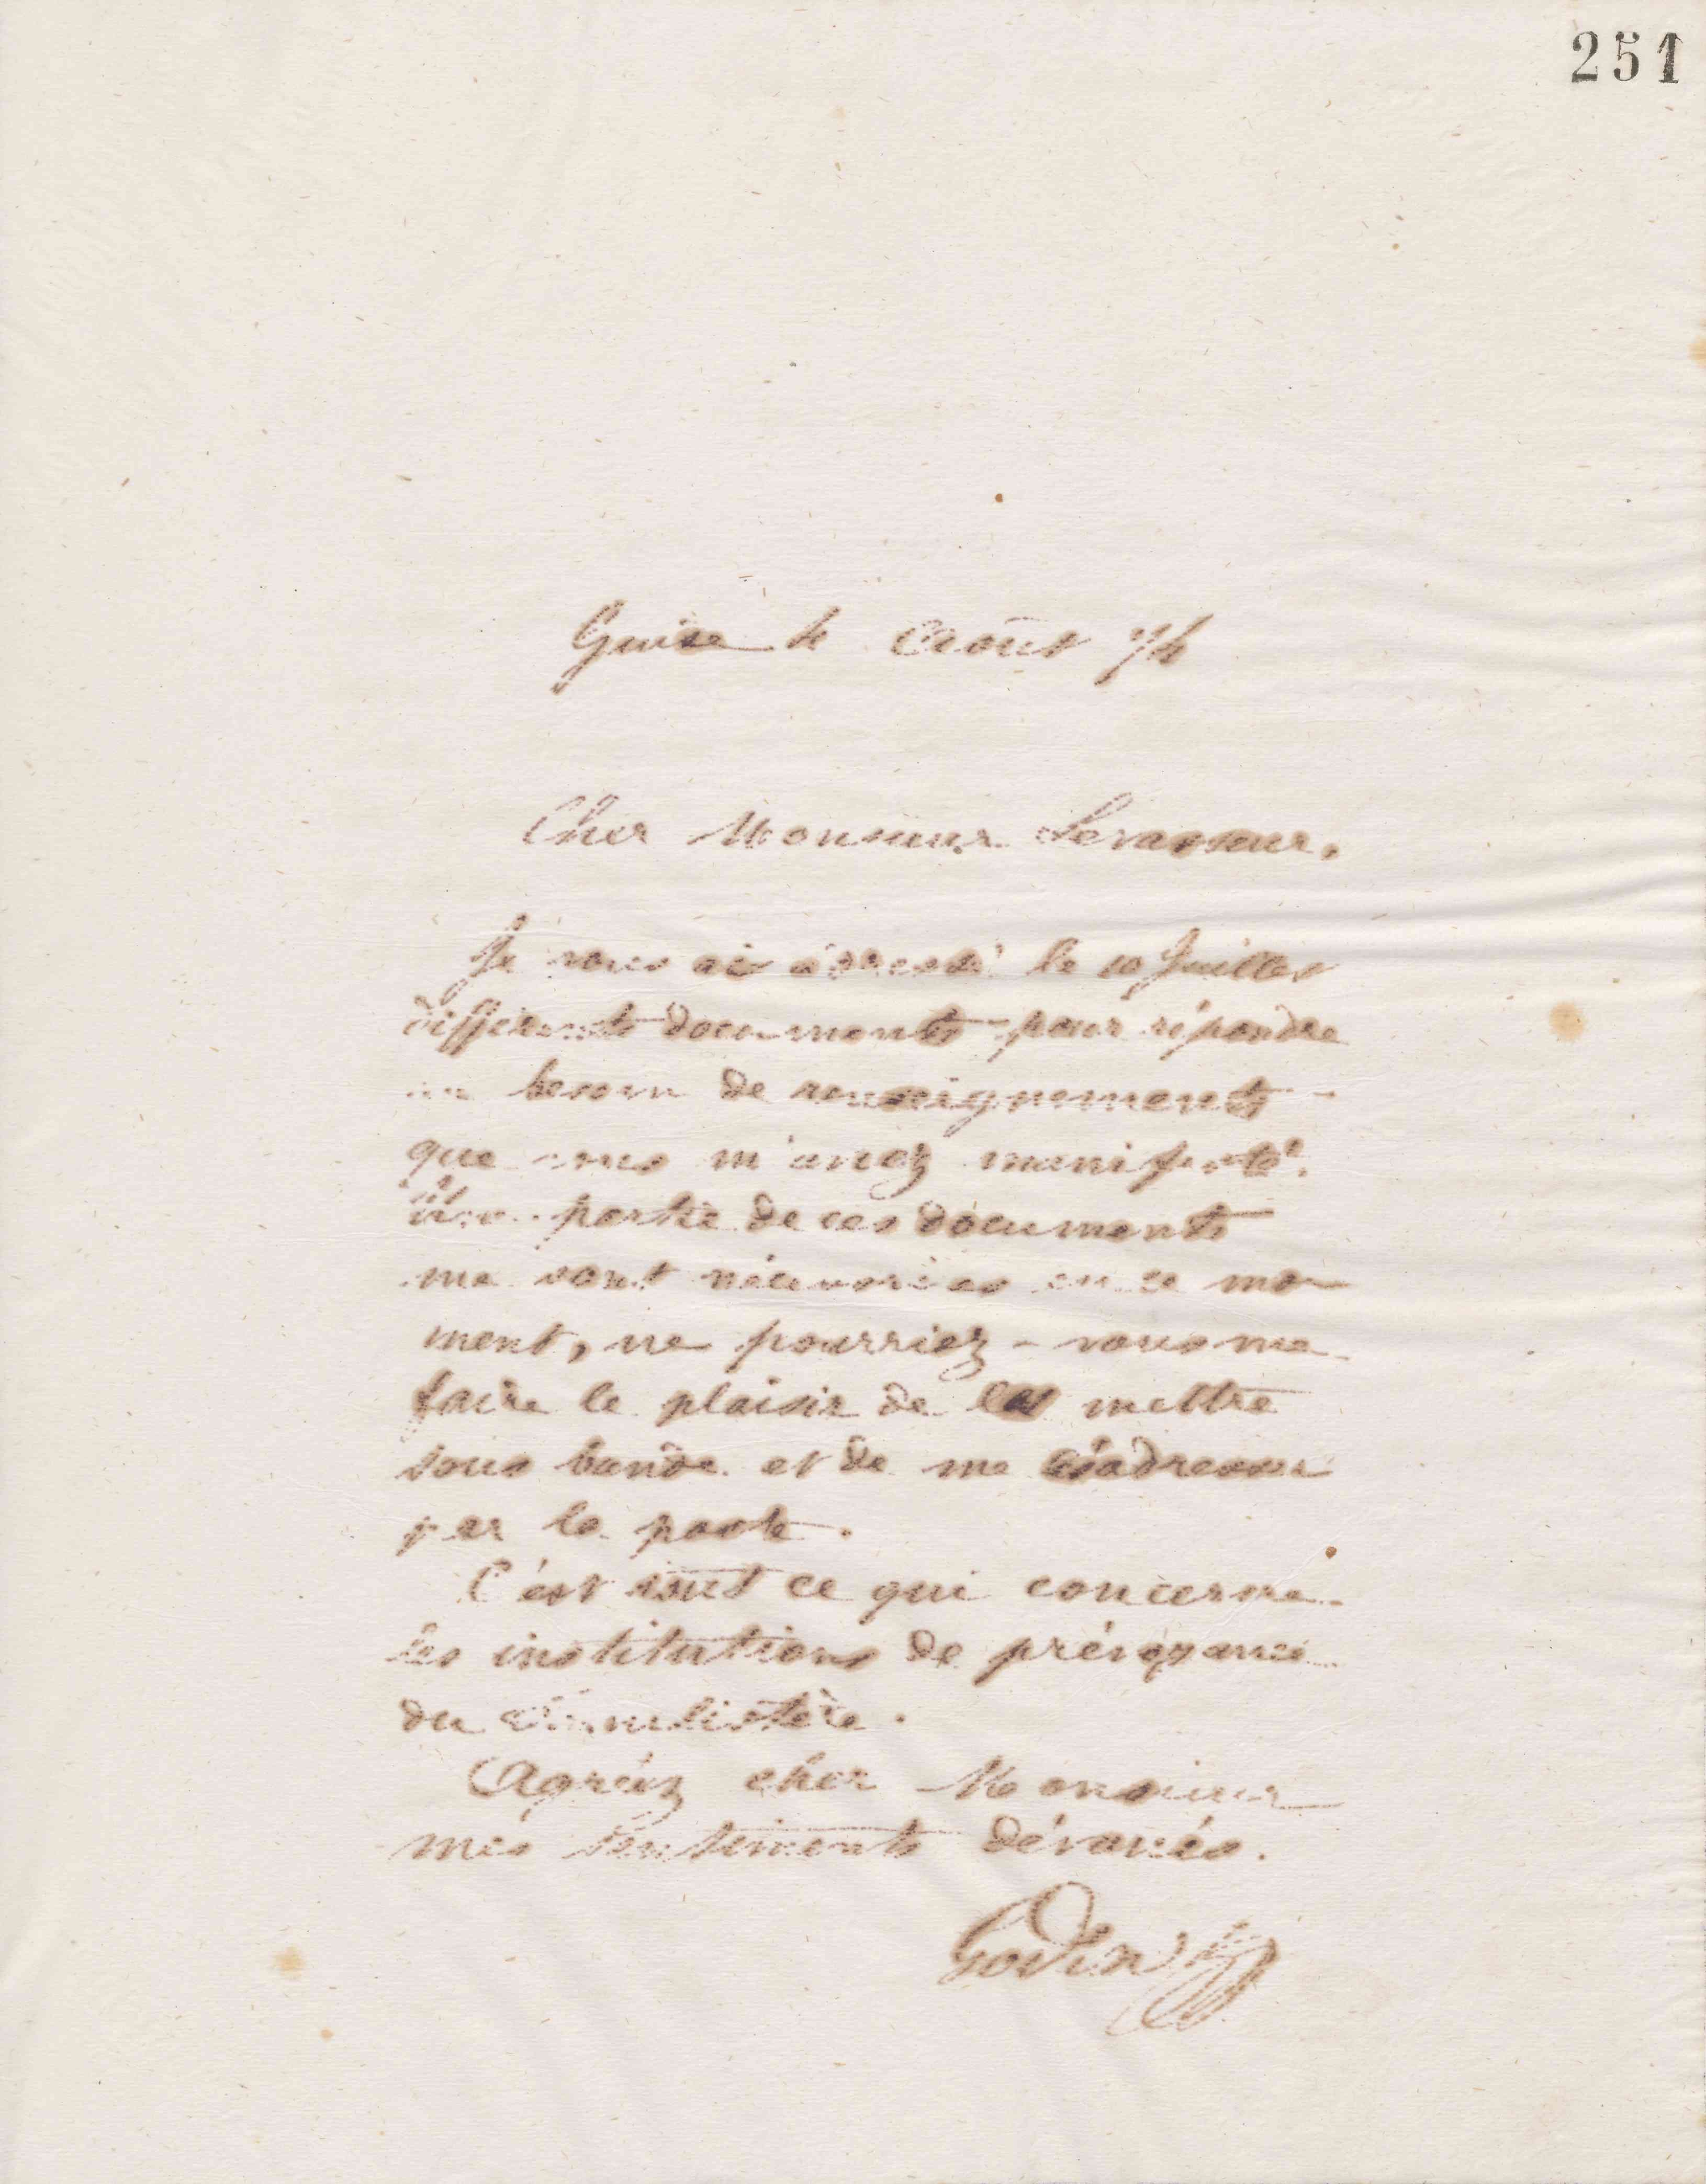 251
Guise 4 Août 74
Cher Monsieur Levasseur,
Je vous ai adressé le 10 Juillet
différents documents pour répondre
au besoin de renseignements
que vous m'avez manifesté.
Une partie de ces documents
me sont nécessaires en ce mo
ment, ne pourriez-vous me
faire le plaisir de les mettre
sous bande et de me adresser
par la poste.
C'est tout ce qui concerne
les institutions de prévoyance
du Familistère.
Agréez cher Monsieur
mes sentiments dévoués.
Godin